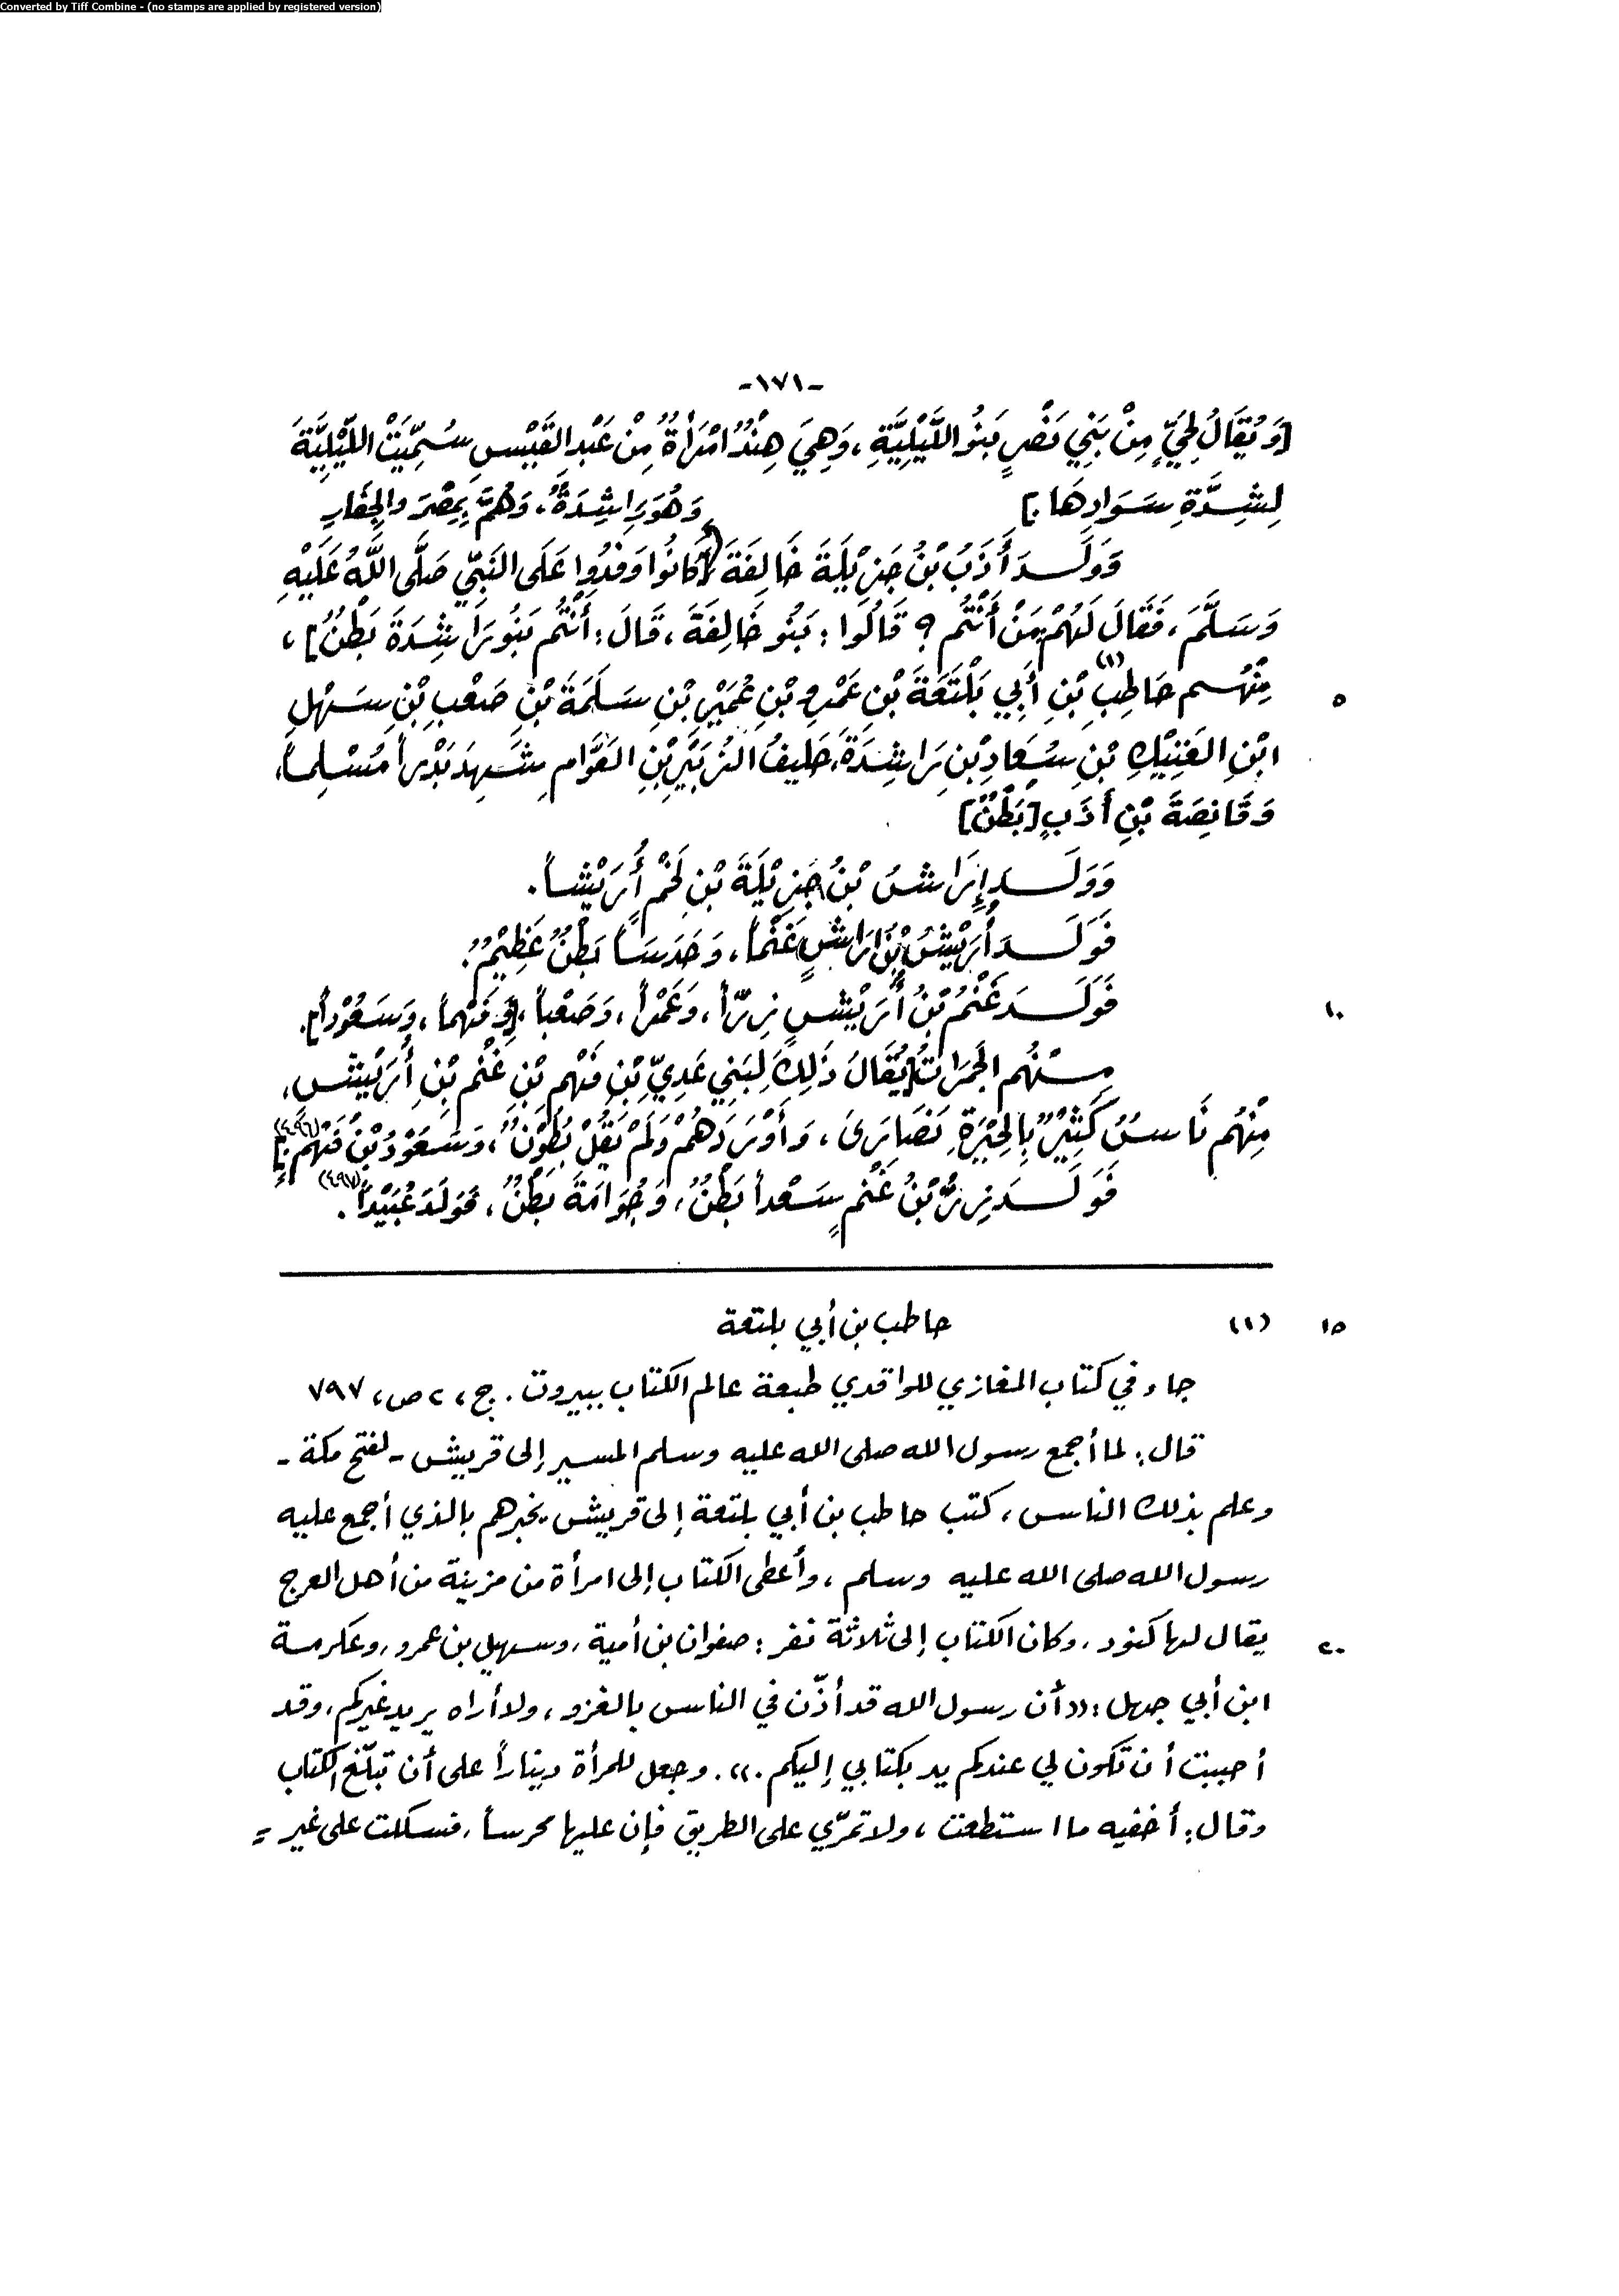 Converted by Tiff Combine - (no stamps are applied by registered version)
-١٧١-
[وَيُقَالُ لِحَيٍّ مِنْ بَنِي نَصْرٍ بَنُو اللَّيْلِيَّةِ، وَهِيَ هِنْدُ امْرَأَةٌ مِنْ عَبْدِ القَيْسِ سُمِّيَتْ اللَّيْلِيَّةَ
لِشِدَّةِ سَوَادِهَا.]
وَهُوَ رَاشِدَةُ، وَهُمْ بِمِصْرَ والجِفَارِ
وَوَلَدَ أَذَبُ بْنُ جَزِيْلَةَ خَالِفَةَ [كَانُوا وَفَدُوا عَلَى النَبِيّ صَلَّى اللَّهُ عَلَيْهِ
وَسَلَّمَ، فَقَالَ لَهُمْ مَنْ أَنْتُم؟ قَالُوا: بَنُو خَالِفَةَ، قَالَ: أَنْتُم بَنُو رَاشِدَةَ بَطْنٌ]،
٥ مِنْهُم حَاطِبِ (١) بْنِ أَبِي بَلْتَعَةَ بْنِ عَمْرِو بْنِ عُمَيْرِ بْنِ سَلَمَةَ بْنِ صَعْبِ بْنِ سَهْلِ
ابْنِ العَتِيْكِ بْنِ سُعَادِ بْنِ رَاشِدَةَ، حَلِيفُ الزُبَيْرِ بْنِ العَوَّامِ شَهِدَ بَدْراً مُسْلِماً،
وَقَانِصَةَ بْنِ أَذَبٍ [بَطْنٌ]
وَوَلَدَ إِرَاشُ بْنُ جَزِيْلَةَ بْنِ لَخْمٍ أُرَيْشاً.
فَوَلَدَ أُرَيْشُ بْنُ إِرَاشٍ غَنْماً، وَحَدَساً بَطْنٌ عَظِيْمٌ.
١٠ فَوَلَدَ غَنْمُ بْنُ أُرَيْشٍ زِرّاً، وَعَمْراً، وَصَعْباً، [وَفَهْماً، وَسَعُوْداً].
مِنْهُم الجَمَرَاتُ [يُقَالُ ذَلِكَ لِبَنِي عَدِيِّ بْنِ فَهْمِ بْنِ غَنْمِ بْنِ أُرَيْشٍ،
مِنْهُم نَاسٌ كَثِيْرٌ بِالحِيْرَةِ نَصَارَى، وَأَوْرَدَهُمْ وَلَمْ يَقُلْ بُطُوْنٌ، وَسَعُوْدُ بْنُ فَهْمٍ.] (٤٩٦)
فَوَلَدَ زِرُّ بْنُ غَنْمٍ سَعْداً بَطْنٌ، وَجُوَامَةَ بَطْنٌ، فَوَلَدَ عُبَيْداً (٤٩٧).
١٥ (١) حاطب بن أبي بلتعة
جاء في كتاب المغازي للواقدي طبعة عالم الكتاب ببيروت. ج، ٢ ص، ٧٩٧
قال: لما أجمع رسول الله صلى الله عليه وسلم المسير إلى قريش - لفتح مكة -
وعلم بذلك الناس، كتب حاطب بن أبي بلتعة إلى قريش يخبرهم بالذي أجمع عليه
رسول الله صلى الله عليه وسلم، وأعطى الكتاب إلى امرأة من مزينة من أهل العرج
٢٠ يقال لها كنود، وكان الكتاب إلى ثلاثة نفر: صفوان بن أمية، وسهيل بن عمرو، وعكرمة
ابن أبي جهل: ((أن رسول الله قد أذّن في الناس بالغزو، ولا أراه يريد غيركم، وقد
أحببت أن تكون لي عندكم يد بكتابي إليكم.)). وجعل للمرأة ديناراً على أن تبلّغ الكتاب
وقال: أخفيه ما استطعت، ولا تمرّي على الطريق فإن عليها محرساً، فسلكت على غير =